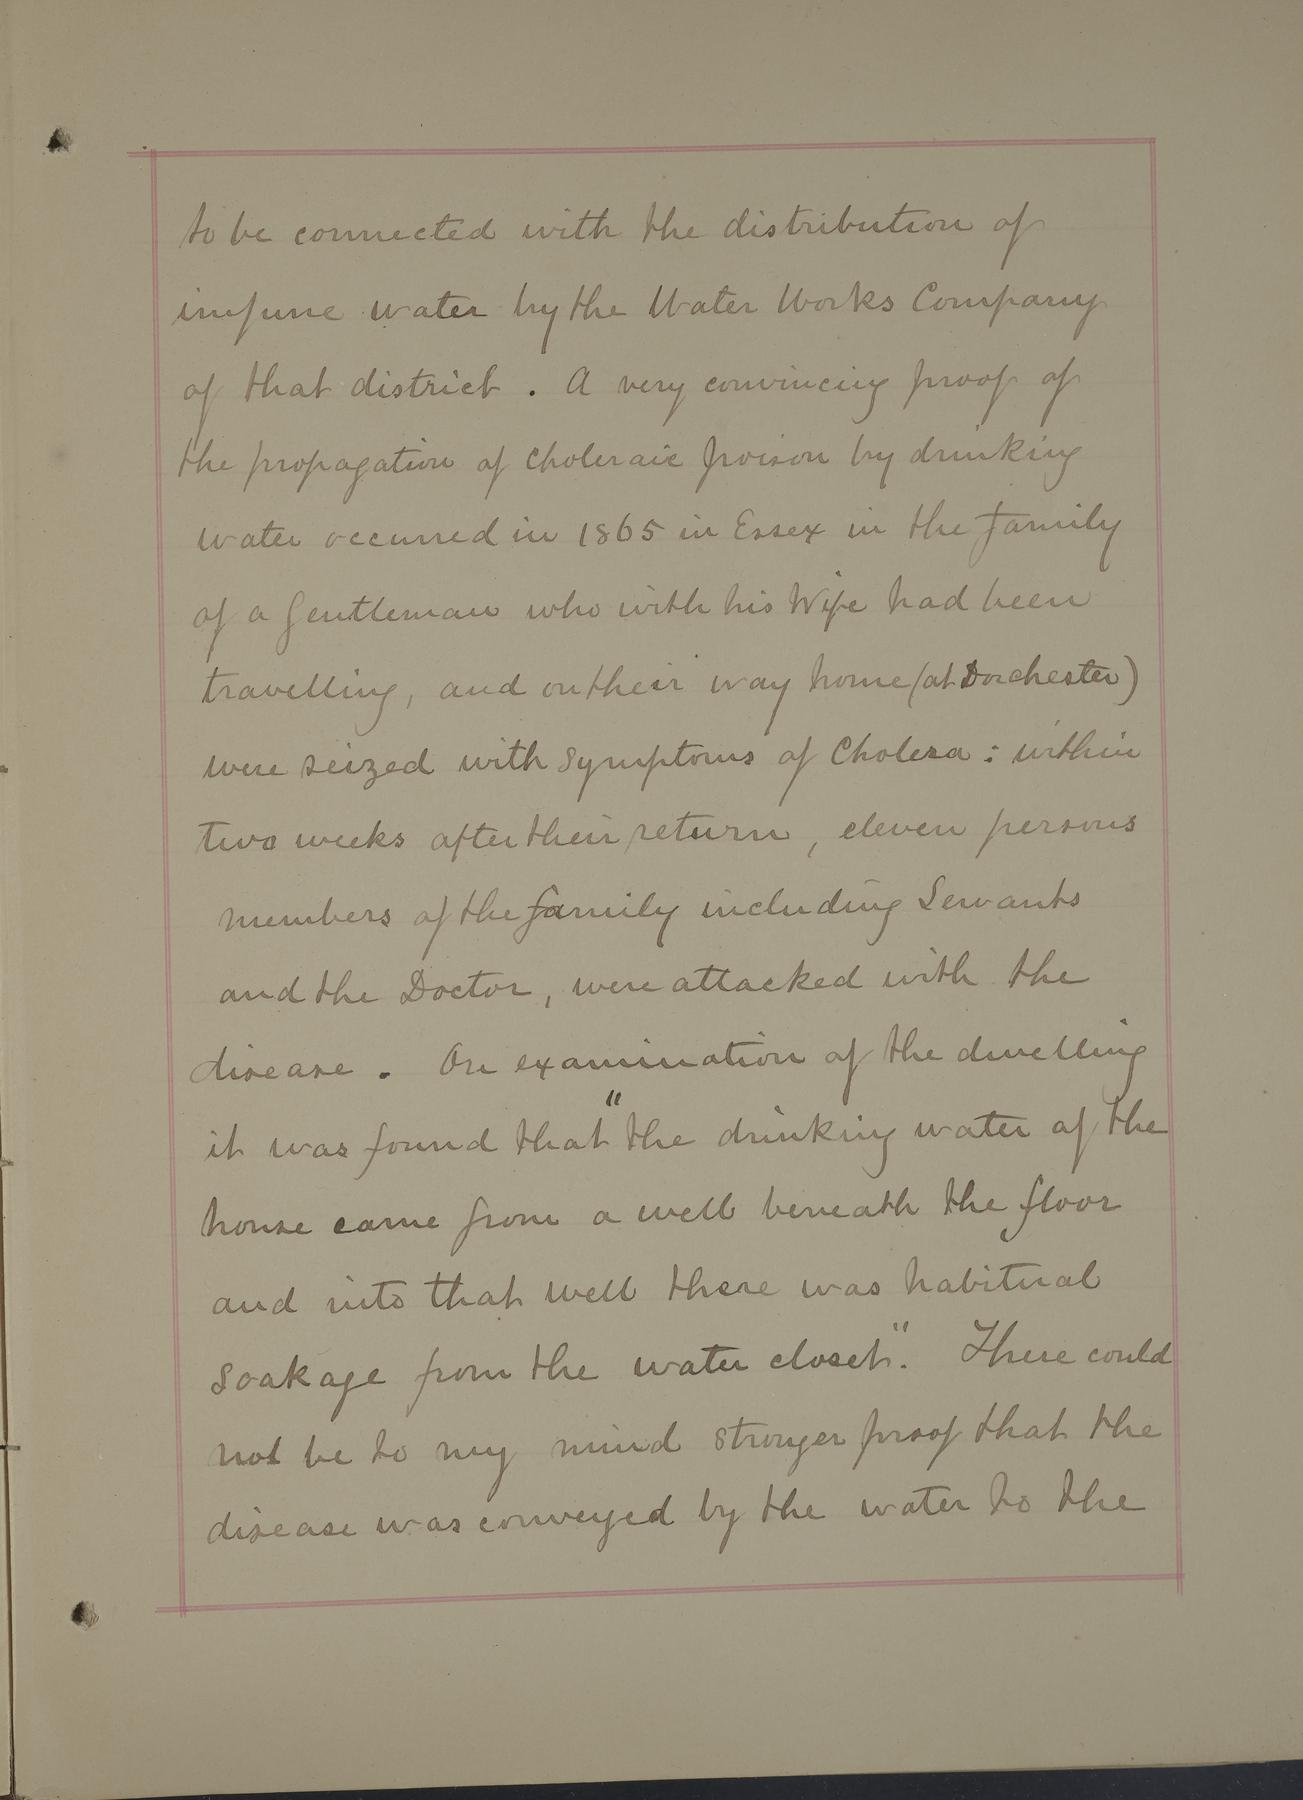 to be connected with the distribution of
impure water by the Water Works Company
of that district. A very convincing proof of
the propagation of choleraic poison by drinking
water occurred in 1865 in Essex in the family
of a Gentleman who with his Wife had been
travelling, and on their way home (at Dorchester)
were seized with symptoms of Cholera: within
two weeks after their return, eleven persons
members of the family including Servants
and the Doctor, were attacked with the
disease. On examination of the dwelling
it was found that "the drinking water of the
house came from a well beneath the floor
and into that well there was habitual
soakage from the water closet". There could
not be to my mind stronger proof that the
disease was conveyed by the water to the